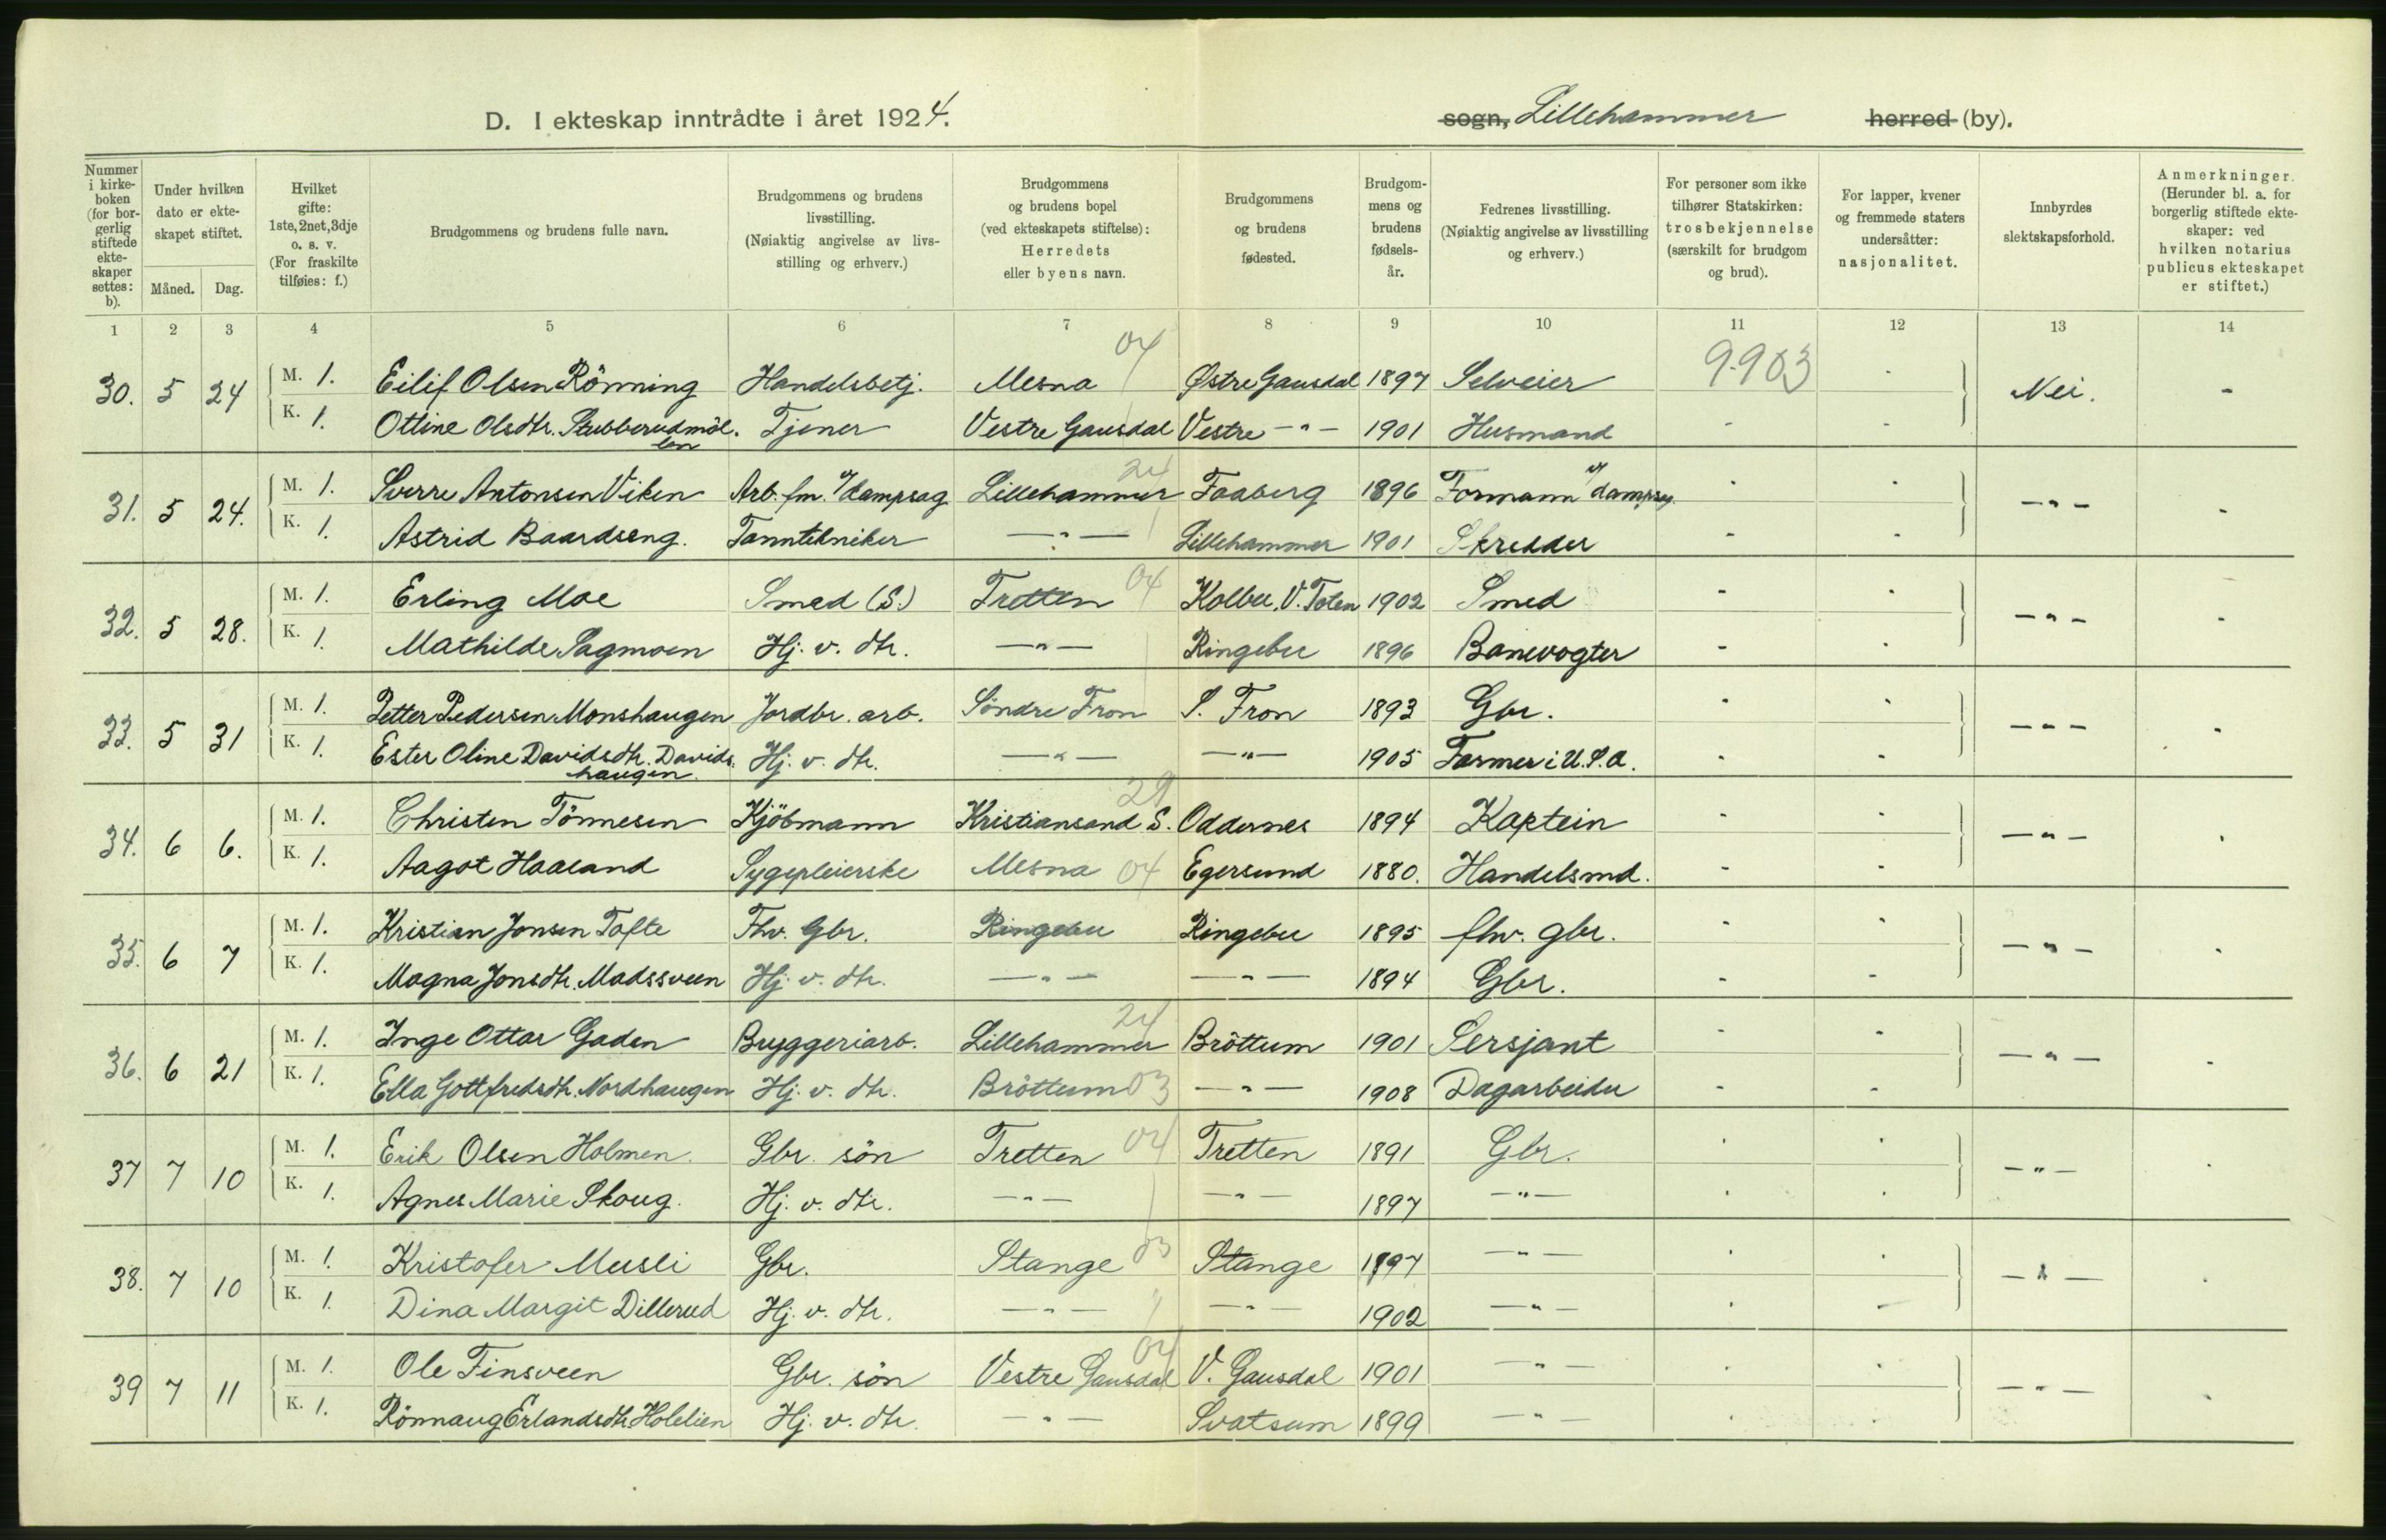 D. I ekteskap inntrådte i året 1924. sogn, Lillehammer herred (by).
Nummer i kirkeboken (for borgerlig stiftede ekteskaper settes: b). Under hvilken dato er ekteskapet stiftet. Måned. Dag. Hvilket gifte: 1ste, 2net, 3dje o. s. v. (For fraskilte tilføies: f.) Brudgommens og brudens fulle navn. Brudgommens og brudens livsstilling. (Nøiaktig angivelse av livsstilling og erhverv.) Brudgommens og brudens bopel (ved ekteskapets stiftelse): Herredets eller byens navn. Brudgommens og brudens fødested. Brudgommens og brudens fødselsår. Fedrenes livsstilling. (Nøiaktig angivelse av livsstilling og erhverv.) For personer som ikke tilhører Statskirken: trosbekjennelse (særskilt for brudgom og brud). For lapper, kvener og fremmede staters undersåtter: nasjonalitet. Innbyrdes slektskapsforhold. Anmerkninger. (Herunder bl. a. for borgerlig stiftede ekteskaper: ved hvilken notarius publicus ekteskapet er stiftet.)
1 2 3 4 5 6 7 8 9 10 11 12 13 14
30. 5 24 M. 1. Eilif Olsen Rönning Handelsbetj. Mesna 04 Østre Gausdal 1897 Selveier 9903 - Nei. -
K. 1. Otline Olsdtr. Stubberudmöllen Tjener Vestre Gausdal Vestre -"- 1901 Husmand - -
31. 5 24. M. 1. Sverre Antonsen Viken Arb. fm. v/ dampsag Lillehammer 24 Faaberg 1896 Formann v/ dampsag. - - -"- -
K. 1. Astrid Baardseng. Tanntekniker -"- Lillehammer 1901 Skredder - -
32. 5 28. M. 1. Erling Moe Smed (S.) Tretten 04 Kolbu, V. Toten 1902 Smed - - -"- -
K. 1. Mathilde Sagmoen Hj. v. dtr. -"- Ringebu 1896 Banevogter - -
33. 5 31 M. 1. Petter Pedersen Monshaugen Jordbr. arb. Söndre Fron S. Fron 1893 Gbr. - - -"- -
K. 1. Ester Oline Davidsdtr. Davidshaugen Hj. v. dtr. -"- -"- 1905 Farmer i U.S.A. - -
34. 6 6. M. 1. Christen Tönnesen Kjöbmann Kristiansand S. 29 Oddernes 1894 Kaptein - - -"- -
K. 1. Aagot Haaland Sygepleierske Mesna 04 Egersund 1880. Handelsmd. - -
35. 6 7 M. 1. Kristian Jonsen Tofte Fhv. Gbr. Ringebu Ringebu 1895 fhv. gbr. - - -"- -
K. 1. Magna Jonsdtr. Madssveen Hj. v. dtr. -"- -"- 1894 Gbr. - -
36. 6 21 M. 1. Inge Ottar Gaden Bryggeriarb. Lillehammer 24 Bröttum 1901 Sersjant - - -"- -
K. 1. Ella Gottfredsdtr. Nordhaugen Hj. v. dtr. Bröttum 03 -"- 1908 Dagarbeider - -
37 7 10 M. 1. Erik Olsen Holmen. Gbr. sön Tretten 04 Tretten 1891 Gbr. - - -"- -
K. 1. Agnes Marie Skoug. Hj. v. dtr. -"- -"- 1897 -"- - -
38. 7 10 M. 1. Kristofer Musli Gbr. Stange 03 Stange 1897 -"- - - -"- -
K. 1. Dina Margit Dillerud Hj. v. dtr. -"- -"- 1902 -"- - -
39 7 11 M. 1. Ole Finsveen Gbr. sön Vestre Gausdal 04 V. Gausdal 1901 -"- - - -"- -
K. 1. Rönnaug Erlandsdtr. Holelien Hj. v. dtr. -"- Svatsum 1899 -"- - -